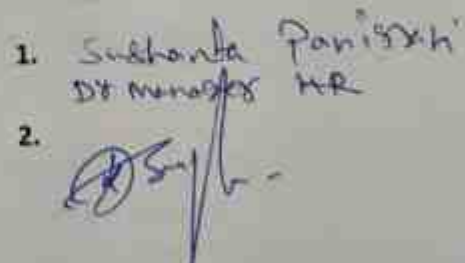 1. Sushanta Panigrahi
Dy Manager HR
2.